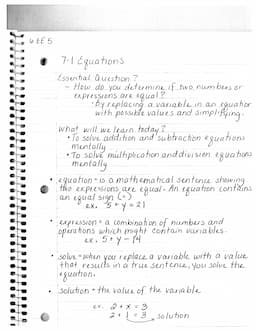 6 EE 5
7-1 Equations
Essential Question?
- How do you determine if two numbers or
expressions are equal?
- by replacing a variable in an equation
with possible values and simplifying.
What will we learn today?
• To solve addition and subtraction equations
mentally
• To solve multiplication and division equations
mentally
• equation = is a mathematical sentence showing
the expressions are equal. An equation contains
an equal sign (=)
ex. 5 + y = 21
• expression = a combination of numbers and
operations which might contain variables.
ex. 5 + y - 14
• solve = when you replace a variable with a value
that results in a true sentence, you solve the
equation.
• solution = the value of the variable
ex. 2 + x = 3
2 + 1 = 3 solution